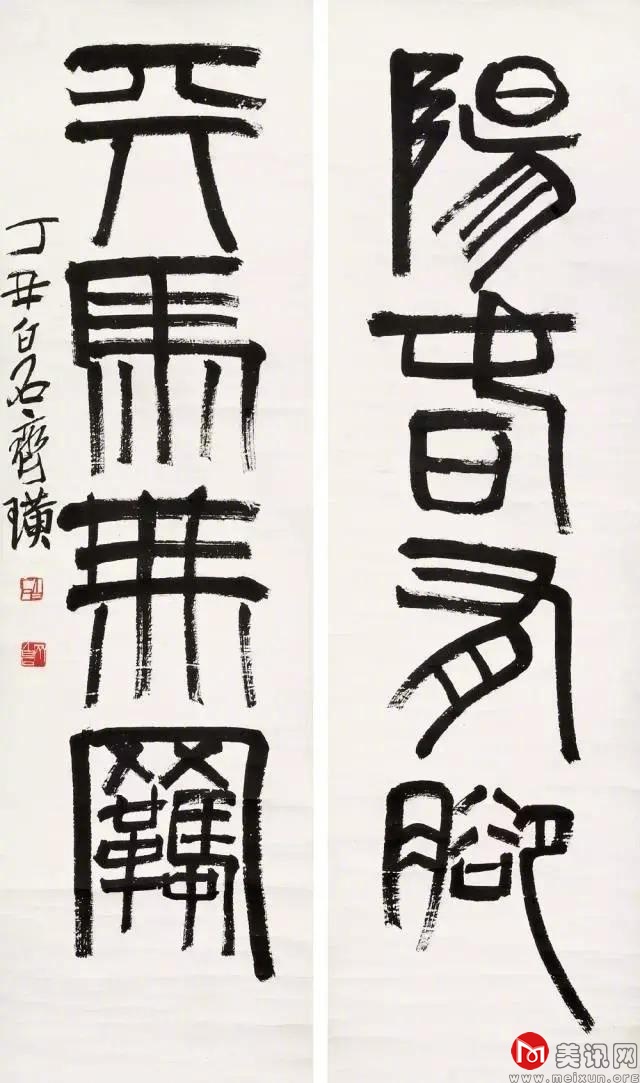 陽春有腳
天馬無羈
丁丑白石齊璜
美讯网
www.meixun.org